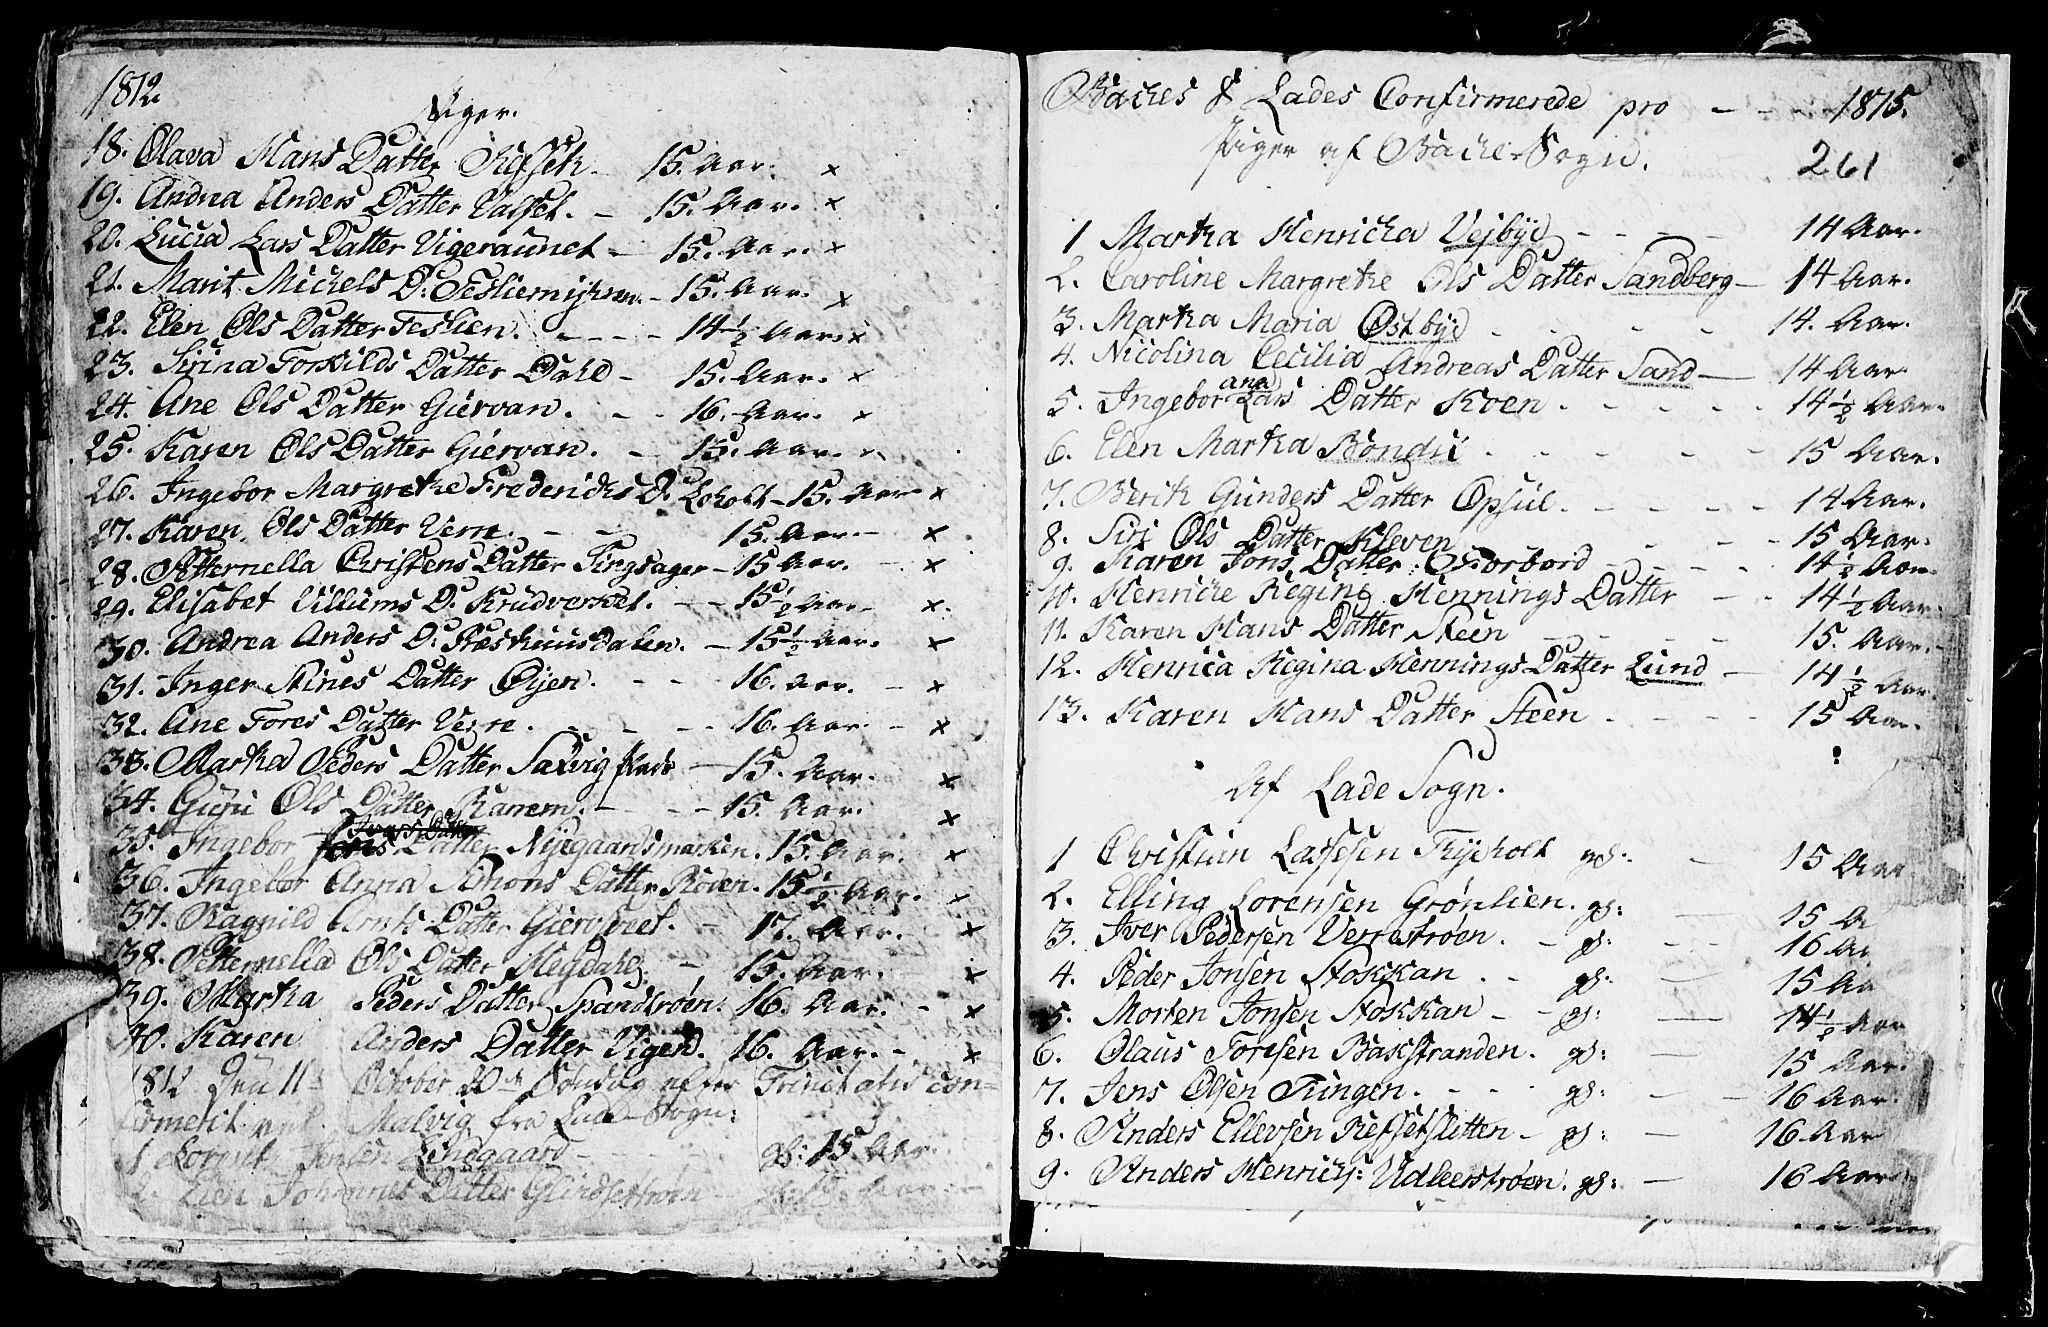 1812
Piger.
18. Olava Hans Datter Refset. 15. Aar. x
19. Andrea Anders Datter Valset. – 15. Aar. x
20. Lucia Lars Datter Vigeraunet – 15. Aar. x
21. Marit Michels D: Tesliemyhren. – 15. Aar. x
22. Elen Ols Datter Teslien. – – – – 14 1/2 Aar. x
23. Sirina Torkilds Datter Dahl – 15. Aar. x
24. Ane Ols Datter Giervan. – – 16. Aar. x
25. Karen Ols Datter Giervan. – 15. Aar. x
26. Ingebor Margrethe Fredericks D. Leholt – 15. Aar x
27. Karen Ols Datter Verre. – – 15. Aar. – x
28. Petternella Christens Datter Singsager – 15 Aar. – x
29. Elisabet Villums D. Krudverket. – – 15 1/2 Aar. – x.
30. Andrea Anders D. Præsthuusdalen. – 15 1/2 Aar. x
31. Inger Stines Datter Øijen. – – – 16. Aar. – x
32. Ane Tores Datter Verre. – – – – 16. Aar. – x
33. Martha Peders Datter Saxvig – 15. Aar. x
34. Guri Ols Datter Ranem. – – – 15. Aar. x
35. Ingebor Datter Nygaardsmarken. 15. Aar. x
36. Ingebor Anna Simons Datter Røven. 15 1/2 Aar. x
37. Ragnild Arnts Datter – 17. Aar. x
38. Petternella Ols Datter – 15. Aar. x
39. Martha Peders Datter Spandtrøen. 16. Aar. – x
40. Karen Anders Datter Vigen. 16. Aar. – x
1812 den 11te October 20de Søndag efter Trinitatis con=
firmerit ved Malvig fra Lade Sogn:
1 Lorentz Jensen Lindgaard – gs: 15 Aar.
2. Elen Johannes Datter
Baches & Lades Confirmerede pro – – 1815.
Piger af Bache Sogn. 261
1 Martha Henricka Vejbye – – – – 14 Aar.
2. Caroline Margrethe Ols Datter Sandberg – 14 Aar.
3. Martha Maria Østbye – – – – 14. Aar.
4. Nicolina Cecilia Andreas Datter Sand – 14 Aar
5. Ingebor ana Lars Datter Kven. – – – – 14 1/2 Aar.
6. Elen Martha Bondri . – – – – 15 Aar.
7. Berith Gunders Datter Opsul. – – – – 14 Aar.
8. Siri Ols Datter Kleven – – – – 15 Aar.
9. Karen Jons Datter Forbord – – – – 14 1/2 Aar.
10. Henricke Regine Hennings Datter – – 14 1/2 Aar.
11. Karen Hans Datter Steen – – – – 15. Aar.
12. Henrica Regina Hennings Datter Lund – 14 1/2 Aar.
13. Karen Hans Datter Steen. – – – – 15 Aar.
Af Lade Sogn.
1 Christian Lassesen Tryeholt gs: – 15 Aar
2. Elling Lorensen Grønlien. gs: – 15 A
3. Iver Pedersen Verrestrøen. – gs: – – 16 Aa
4. Peder Jonsen Stokkan – – gs: – 15 Aa
5. Morten Jonsen Stokkan – – gs: – 14 1/2 Aar
6. Olaus Toresen Bakstranden. gs: – 15 Aar.
7. Jens Olsen Ringen. – – – gs: – – 16 Aar.
8. Anders Ellevsen Refsetslitten – gs: – 16 Aar
9. Anders Henrichs: Udleerstrøen. gs: – 16 Aar.